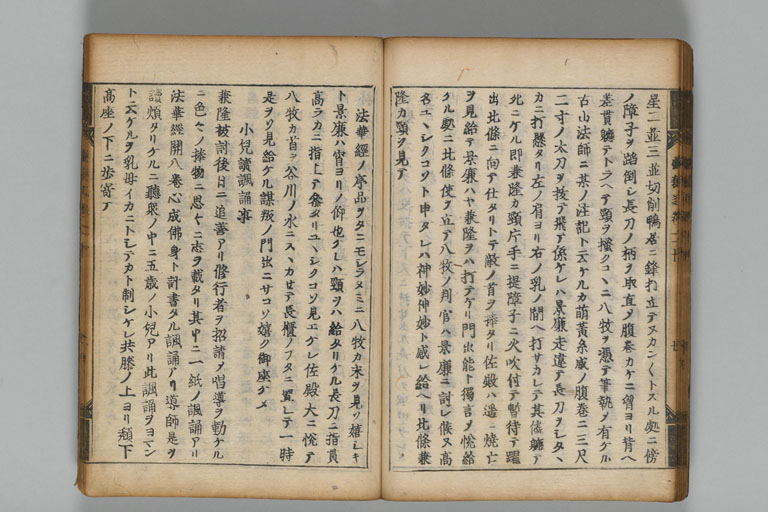 星二並三並切削鴨居ニ鋒打立テヌカン〱トスル処ニ傍
ノ障子ヲ踏倒シ長刀ノ柄ヲ取直ノ腹巻カケニ胷ヨリ背ヘ
差貫軈テトラヘテ頸ヲ掻クコヽニ八牧ヲ憑テ筆執ヲ有ケル
古山法師ニ某ノ注記ト云ケルカ萌黄糸威ノ腹巻ニ三尺
二寸ノ太刀ヲ抜テ飛テ係ケレハ景廉走違テ長刀ヲシタヽ
カニ打懸タリ左ノ肩ヨリ右ノ乳ノ間ヘ打サカレテ其儘軈テ
死ニケル即兼隆カ頸片手ニ提障子ニ火吹付テ暫待テ躍
出北條ニ向テ仕タリトテ敵ノ首ヲ捧タリ佐殿ハ遥ニ焼亡
ヲ見給テ景廉ハヤ兼隆ヲハ打テケリ門出能ト獨言ヲ悦給
ケル処ニ北條使ヲ立テ八牧ノ判官ハ景廉ニ討レ候ヌ高
名ユヽシクコソト申タレハ神妙神妙ト感シ給ヘリ北條兼
隆カ頸ヲ見テ
法華經ノ序品ヲタニモシラヌミニ八牧カ末ヲ見ツ嬉シキ
ト景廉ハ宵ヨリノ仰也クレハ頸ヲハ給タリケル長刀ニ指貫
高ラカニ指上テ参タリユヽシクコソ見エケレ佐殿大ニ悦テ
八牧カ首ヲ谷川ノ水ニスヽカセテ長櫃ノフタニ置レテ一時
是ヲソ見給ケル謀叛ノ門出ニサコソ嬉ク御座ケメ
小兒讀諷誦事
兼隆被討後日ニ追善アリ修行者ヲ招請ノ唱導ヲ勤ケル
ニ色々ノ捧物ニ思々ニ志ヲ載タリ其中ニ一紙ノ諷誦アリ
法華經開八卷心成佛身ト計書タル諷誦アリ導師是ヲ
讀煩タリケルニ聽衆ノ中ニ五歳ノ小兒アリ此諷誦ヲヨマン
ト云ケルヲ乳母イカニトシテカト制シケレ共膝ノ上ヨリ頽下
高座ノ下ニ歩寄テ